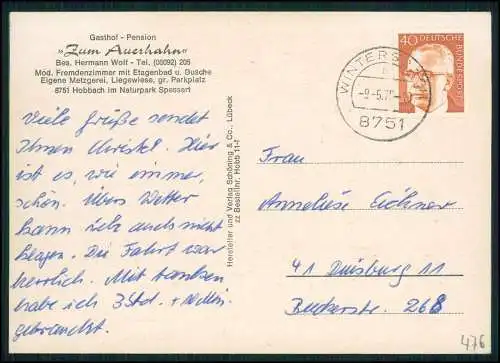 Gasthof - Pension
"Zum Auerhahn"
Bes. Hermann Wolf - Tel. (06092) 205
Mod. Fremdenzimmer mit Etagenbad u. Dusche
Eigene Metzgerei, Liegewiese, gr. Parkplatz
8751 Hobbach im Naturpark Spessart
Viele Grüße sendet
Ihnen Christel. Hier
ist es, wie immer,
schön. Übers Wetter
kann ich auch nicht
klagen. Die Fahrt war
herrlich. Mit tanken
habe ich 3 Std. + 10 Min.
gebraucht.
Hersteller und Verlag Schöning & Co., Lübeck
zz Bestellnr. Hobb 11-1
40 DEUTSCHE
BUNDESPOST
WINTERS
-9-5.7
8751
Frau
Anneliese Eichner
41 Duisburg 11
268
476